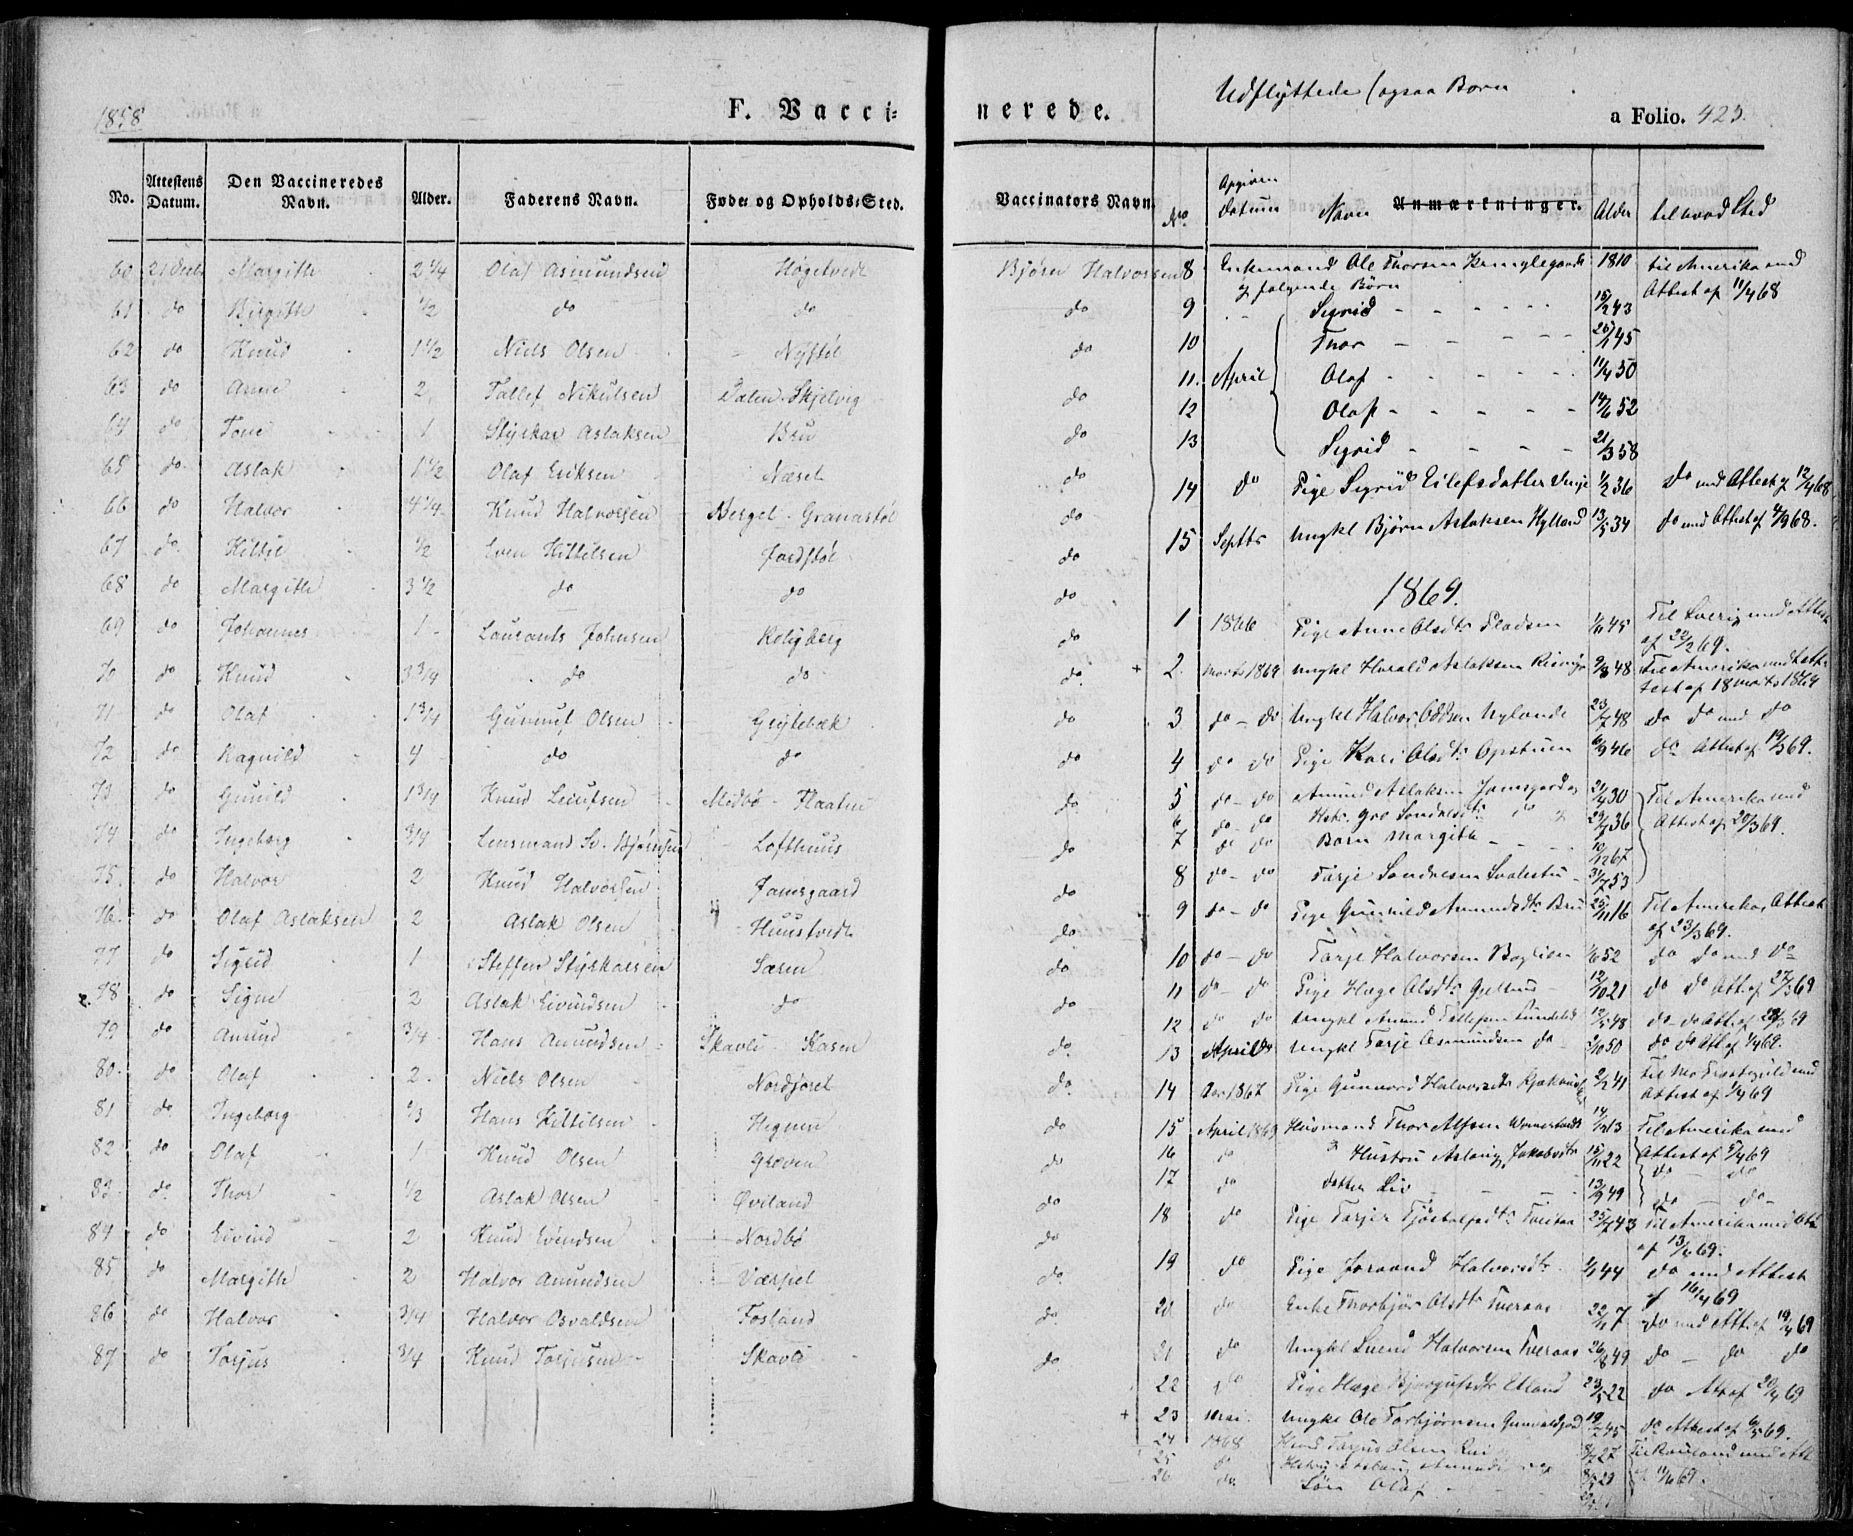 1858
F. Vacci-
nerede.
Udflyttede (ogsaa Børn
a Folio. 423.
No. Attestens Datum. Den Vaccineredes Navn. Alder. Faderens Navn. Føde- og Opholds-Sted.
Vaccinators Navn
No Opgiven Datum Navn Anmærkninger. Alder til hvad Sted
60 21 Decbr Margith 2 1/4 Olaf Asmundsen Høgetvedt Bjørn Halvorsen
61 do Birgith 1/2 do do do
62 do Knud 1 1/2 Niels Olsen Nystøl do
63 do Anne 2 Tallef Nikulsen Dalen Skjelvig do
64 do Tone 1 Styrkar Aslaksen Bru do
65 do Aslak 1 1/2 Olaf Eriksen Næset do
66 do Halvor 4 1/4 Knud Halvorsen Berget Granastøl do
67 do Kittil 1/2 Even Kittilsen Jordstøl do
68 do Margith 3 1/2 do do do
69 do Johannes 1 Laurants Johnsen Roligberg do
70 do Knud 3 3/4 do do do
71 do Olaf 1 3/4 Gunnuf Olsen Grytebæk do
72 do Ragnild 4 do do do
73 do Gunild 1 3/4 Knud Leiufsen Midbø Flaaten do
74 do Ingeborg 3/4 Lensmand Sv. Bjørnsen Lofthuus do
75 do Halvor 2 Knud Halvorsen Jamsgaard do
76 do Olaf Aslaksen 2 Aslak Olsen Huustvedt do
77 do Sigrid 1 Steffen Styrkarsen Særen do
78 do Signe 2 Aslak Eivindsen do do
79 do Amund 3/4 Hans Amundsen Skavli Kasen do
80 do Olaf 2 Niels Olsen Nordjoret do
81 do Ingeborg 1/3 Hans Kittilsen Hegnin do
82 do Olaf 1 Knud Olsen Groven do
83 do Thor 1/2 Aslak Olsen Øviland do
84 do Eivind 2 Knud Evindsen Nordbø do
85 do Margith 2 Halvor Amundsen Værpet do
86 do Halvor 3/4 Halvor Osvaldsen Fosland do
87 do Torjus 3/4 Knud Torjusen Skavli do
8 Enkemand Ole Thorsen 1810 til Amerika med
og følgende Børn Attest af 11/4 68
9 Sigrid 15/2 43
10 Thor 45
11. April Olaf 11/4 50
12 Olaf 14/6 52
13 Sigrid 21/3 58
14 do Pige Sigrid Eilefsdatter Vinje 1/2 36 do med Attest af 12/4 68
15 Septbr Ungkl Bjørn Aslaksen Hylland 13/5 34 do med Attest af 4/9 68.
1869.
1 1866 Pige Anne Olsdtr 45 Til Sverig med Attest
af 22/2 69.
2. Marts 1869 Ungkl Harald Aslaksen 48 til Amerika med Att-
test af 18 Marts 1869
3 do - do Ungkl Halvor Oddsen Nylende 23/7 48 do do med do
4 do do Pige Kari Olsdtr Opstuen 6/9 46 do Attest af 19/3 69.
5 do - do Amund Aslaksen Jamsgaard og 21/4 30 Til Amerika med
6 do - do Hstr. Gro Sondresdtr 29/7 36 Attest af 20/3 69.
7 do do Barn Margith 10/12 67
8 do - do Tarje Sondresen 31/7 53
9 do - do Pige Gunhild Amundsdtr Bru 25/11 16 Til Amerika, Attest
af 23/3 69.
10 do - do Tarje Halvorsen 1/6 52 do do med do
11 do - do Pige Hæge Olsdtr 12/10 21 do do Att af 27/3 69
12 do do Ungkl Amund Tallefsen 12/5 48 do - do Att af 28/3 69
13 April do Ungkl Tarje Asmundsen do 50 do do Att af 1/4 69.
14 1867 Pige Gunvord Halvorsdtr 2/2 41 til Mo Præstegjeld med
Attest af 1/4 69
15 April 1869 Huusmand Thor Alfsen 13 Til Amerika med
16 do Hustru Aslaug Jakobsdtr 15/11 22 Attest af 5/4 69
17 do datter Liv 13/9 49 do do
18 do Pige Tarjer 25/7 43 Til Amerika med Att
af 13/4 69.
19 do Pige Joraand Halvorsdtr 44 do med Attest
af 16/4 69
20 do Enke Thorbjør Olsdtr Tveraas 22/7 do med Att af 19/4 69
21 do Ungkl Svend Halvorsen Tveraas 26/8 49 do - do do
22 do Pige Hæge 23/5 22 do Att af 20/4 69
23 Mai Ungkl Ole Torbjørnsen 19/2 45 do Attest af 6/5 69.
24 1868 Torjus Olsen 27 Til Rauland med Att
25 do 29 af 11/6 69.
26 do Søn Olaf